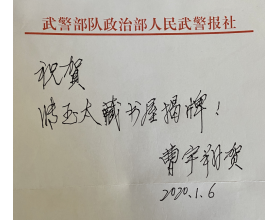 武警部队政治部人民武警报社
祝贺
太藏书屋揭牌！
曹宇翔贺
2020.1.6